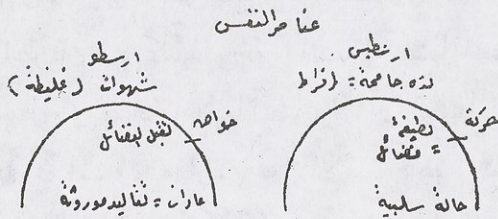 عناصر النفس
ارسطبس
لذه جامحة = افراط
حركة
لطيفة = فضائل
حالة سلبية
ارسطو
شهوات (غليظة)
خواص
تقبل الفضائل
عادات = تقاليد موروثة